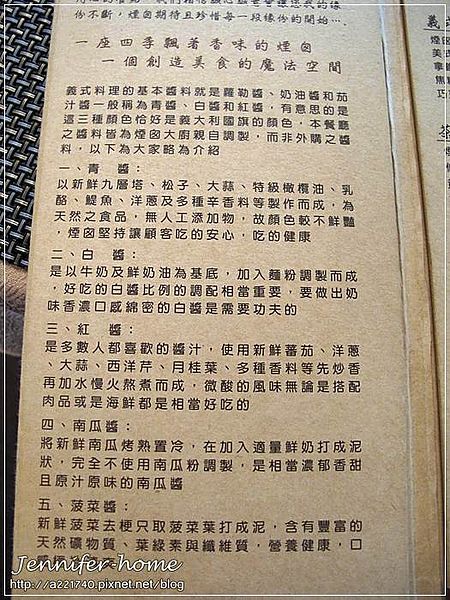 份不斷，煙囪期待且珍惜每一段緣份的開始…。
一座四季飄著香味的煙囪
一個創造美食的魔法空間
義式料理的基本醬料就是蘿勒醬、奶油醬和茄
汁醬一般稱為青醬、白醬和紅醬，有意思的是
這三種顏色恰好是義大利國旗的顏色，本餐廳
之醬料皆為煙囪大廚親自調製，而非外購之醬
料，以下為大家略為介紹
一、青　醬：
以新鮮九層塔、松子、大蒜、特級橄欖油、乳
酪、鯷魚、洋蔥及多種辛香料等製作而成，為
天然之食品，無人工添加物，故顏色較不鮮豔
，煙囪堅持讓顧客吃的安心，吃的健康
二、白　醬：
是以牛奶及鮮奶油為基底，加入麵粉調製而成
，好吃的白醬比例的調配相當重要，要做出奶
味香濃口感綿密的白醬是需要功夫的
三、紅　醬：
是多數人都喜歡的醬汁，使用新鮮蕃茄、洋蔥
、大蒜、西洋芹、月桂葉、多種香料等先炒香
再加水慢火熬煮而成，微酸的風味無論是搭配
肉品或是海鮮都是相當好吃的
四、南瓜醬：
將新鮮南瓜烤熟置冷，在加入適量鮮奶打成泥
狀，完全不使用南瓜粉調製，是相當濃郁香甜
且原汁原味的南瓜醬
五、菠菜醬：
新鮮菠菜去梗只取菠菜葉打成泥，含有豐富的
天然礦物質、葉綠素與纖維質，營養健康，口
Jennifer home
http://a221740.pixnet.net/blog